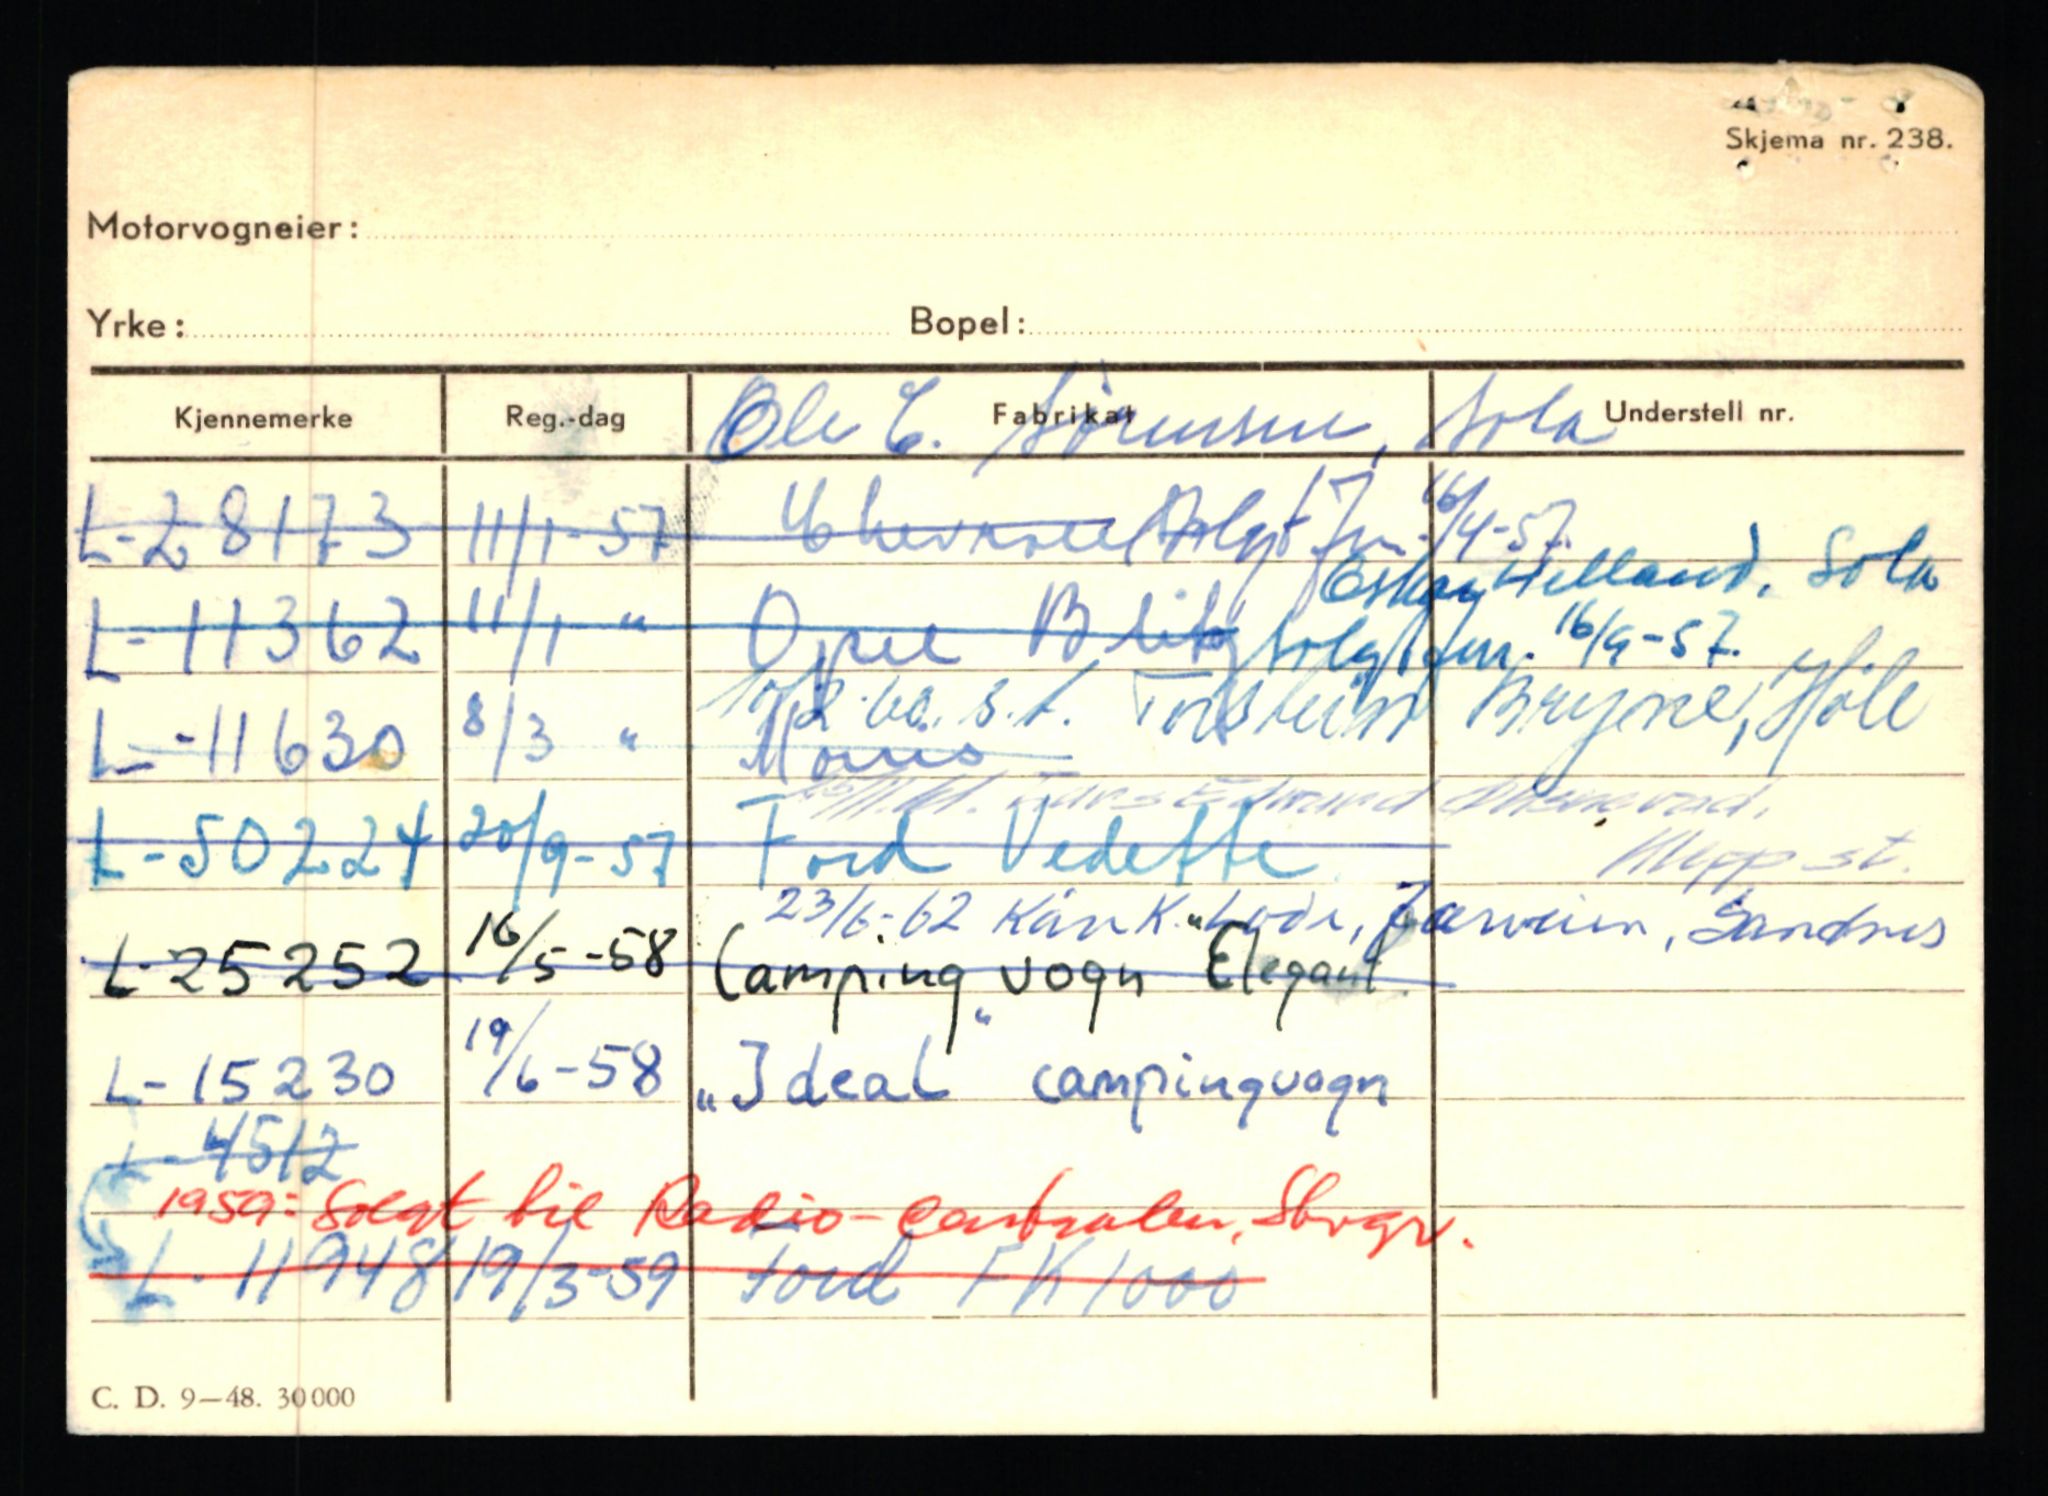 Skjema nr. 238.
Motorvogneier:
Yrke: Bopel:
Kjennemerke Reg.-dag Fabrikat Understell nr.
Ole C. Sørensen, Sola
L-28173 11/1-57 Chevrolet Solgt Jfr. 16/4-57.
Helland, Sola
L-11362 11/1 " Opel Blitz solgt Jfr. 16/9-57.
Torstein Bryne, Høle
L-11630 8/3 " Morris
Edmund
L-50224 20/9-57 Ford Vedette
Klepp st.
23/6-62 Kåre K. Lode, Jærveien, Sandnes
L-25252 16/5-58 Campingvogn "Elegant"
L-15230 19/6-58 "Ideal" campingvogn
L-4512
1959: Solgt til Radio-Centralen, Stvgr.
L-11948 19/3-59 Ford FK 1000
C. D. 9—48. 30000